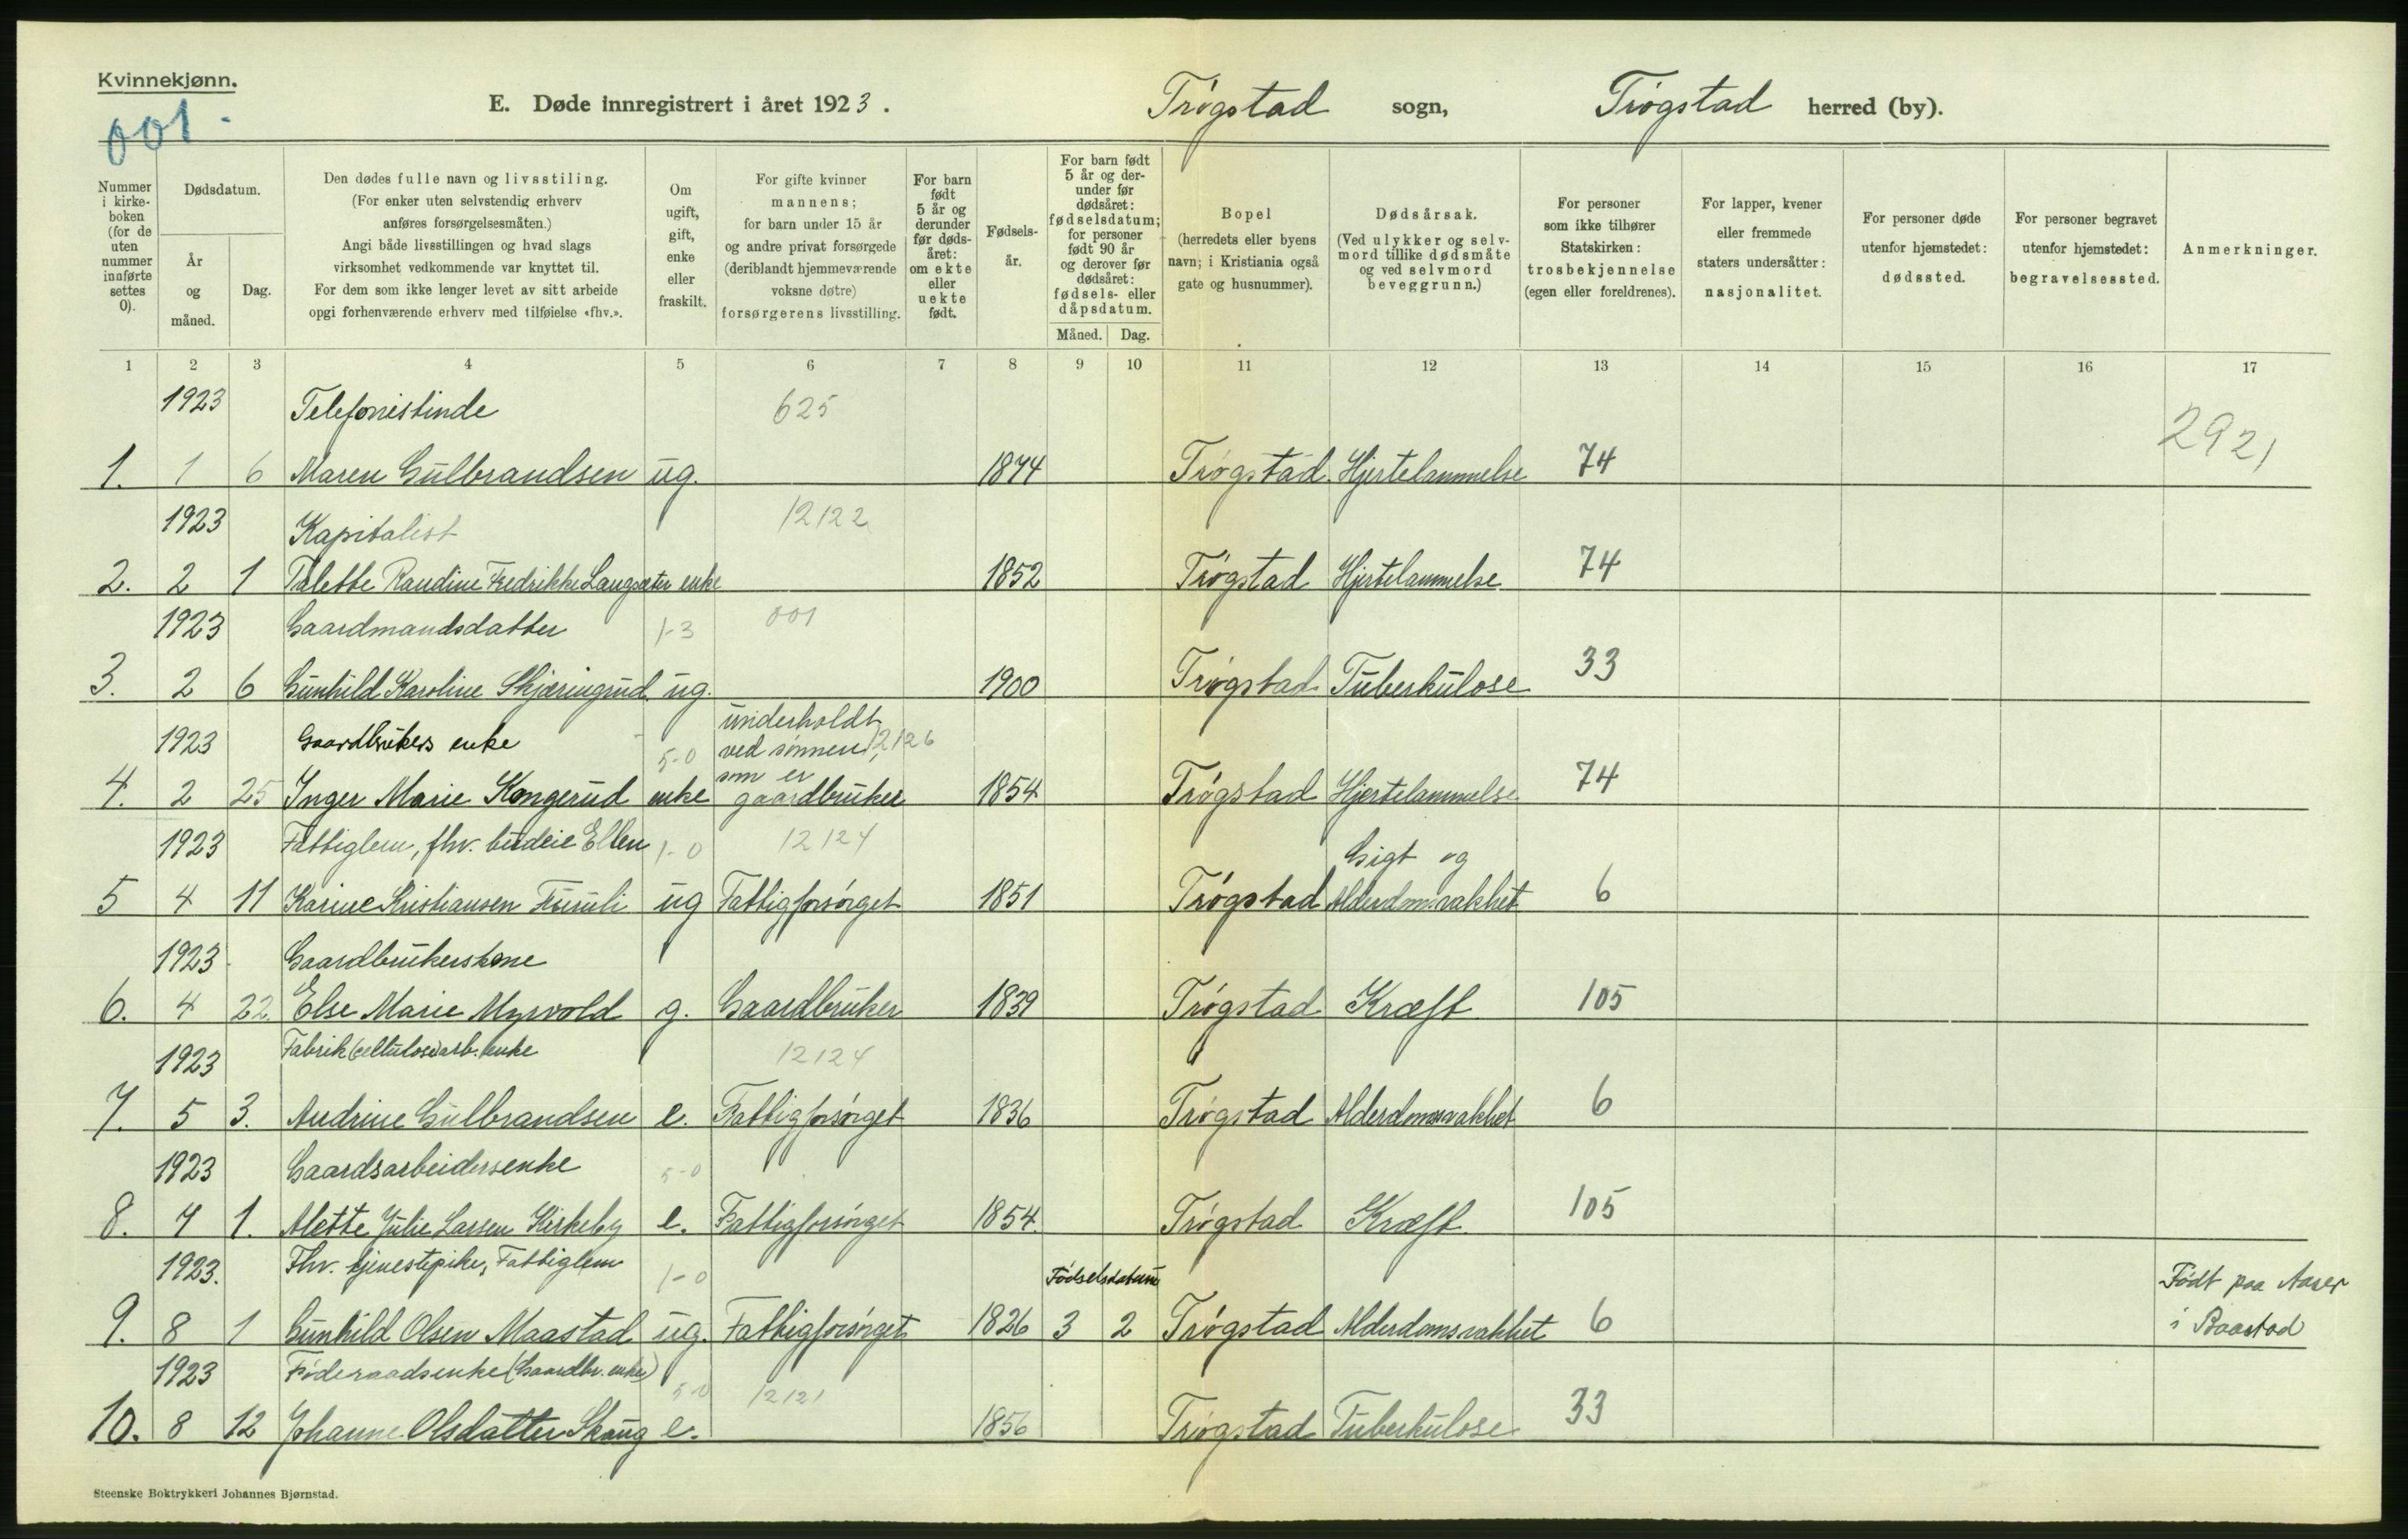 Kvinnekjønn.
001.
E. Døde innregistrert i året 1923.
Trøgstad sogn, Trøgstad herred (by).
Nummer i kirke-boken (for de uten nummer innførte settes 0).
Dødsdatum.
År og måned.
Dag.
Den dødes fulle navn og livsstiling.
(For enker uten selvstendig erhverv
anføres forsørgelsesmåten.)
Angi både livsstillingen og hvad slags
virksomhet vedkommende var knyttet til.
For dem som ikke lenger levet av sitt arbeide
opgi forhenværende erhverv med tilføielse «fhv.».
Om ugift, gift, enke eller fraskilt.
For gifte kvinner
mannens;
for barn under 15 år
og andre privat forsørgede
(deriblandt hjemmeværende
voksne døtre)
forsørgerens livsstilling.
For barn født 5 år og derunder før døds-året: om ekte eller uekte født.
Fødsels-år.
For barn født 5 år og der-under før dødsåret: fødselsdatum; for personer født 90 år og derover før dødsåret: fødsels- eller dåpsdatum.
Måned. Dag.
Bopel
(herredets eller byens
navn; i Kristiania også
gate og husnummer).
Dødsårsak.
(Ved ulykker og selv-
mord tillike dødsmåte
og ved selvmord
beveggrunn.)
For personer
som ikke tilhører
Statskirken:
trosbekjennelse
(egen eller foreldrenes).
For lapper, kvener
eller fremmede
staters undersåtter:
nasjonalitet.
For personer døde
utenfor hjemstedet:
dødssted.
For personer begravet
utenfor hjemstedet:
begravelsessted.
Anmerkninger.
1 2 3 4 5 6 7 8 9 10 11 12 13 14 15 16 17
1923 Telefonistinde 625
2921
1. 1 6 Maren Gulbrandsen ug. 1874 Trøgstad Hjertelammelse 74
1923 Kapitalist 12122
2. 2 1 Talette Randine Fredrikke Langsæter enke 1852 Trøgstad Hjertelammelse 74
1923 Gaardmandsdatter 1-3 001
3. 2 6 Gunhild Karoline Skjæringrud ug. 1900 Trøgstad Tuberkulose 33
1923 Gaardbrukers enke 5-0 underholdt ved sønnen, 12126
som er
4. 2 25 Inger Marie Kongerud enke gaardbruker 1854 Trøgstad Hjertelammelse 74
1923 Fattiglem, fhv. budeie Ellen 1-0 12124 Gigt og
5 4 11 Karine Kristiansen Furuli ug Fattigforsørget 1851 Trøgstad Alderdomsvakhet 6
1923 Gaardbrukerskone
6. 4 22 Else Marie Myrvold g. Gaardbruker 1839 Trøgstad Kræft 105
1923 Fabrik(cellulose)arb. enke 12124
7. 5 3. Andrine Gulbrandsen e. Fattigforsørget 1836 Trøgstad Alderdomssvakhet 6
1923 Gaardsarbeidersenke 5-0
8. 7 1. Alette Julie Larsen Kirkeby e. Fattigforsørget 1854. Trøgstad Kræft 105
1923. Fhv. tjenestepike, Fattiglem 1-0 Fødselsdatum Født paa Aaser
9. 8 1 Gunhild Olsen Maastad ug. Fattigforsørget 1826 3 2 Trøgstad Alderdomsvakhet 6 i Baastad
1923 Føderaadsenke (Gaardbr. enke) 5-0 12121
10. 8 12 Johanne Olsdatter Skaug e. 1856 Trøgstad Tuberkulose 33
Steenske Boktrykkeri Johannes Bjørnstad.